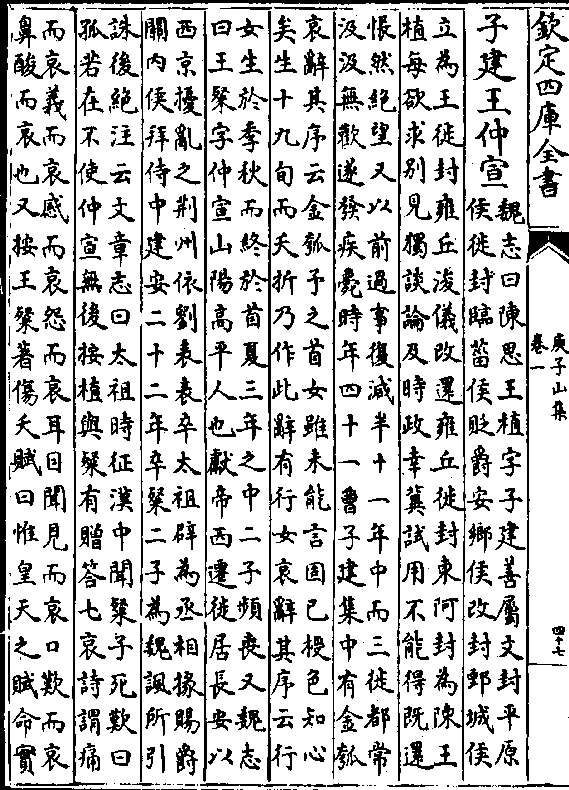 欽定四庫全書
庚子山集
卷一
四十七
子建王仲宣
魏志曰陳思王植字子建善屬文封平原
侯徙封臨菑侯貶爵安鄉侯改封鄄城侯
立為王徙封雍丘浚儀改還雍丘徙封東阿封為陳王
植每欲求別見獨談論及時政幸冀試用不能得既還
悵然絕望又以前過事復減半十一年中而三徙都常
汲汲無歡遂發疾薨時年四十一曹子建集中有金瓠
哀辭其序云金瓠予之首女雖未能言固已授色知心
矣生十九旬而夭折乃作此辭有行女哀辭其序云行
女生於季秋而終於首夏三年之中二子頻喪又魏志
曰王粲字仲宣山陽高平人也獻帝西遷徙居長安以
西京擾亂之荆州依劉表表卒太祖辟為丞相掾賜爵
關内侯拜侍中建安二十二年卒粲二子為魏諷所引
誅後絕注云文章志曰太祖時征漢中聞粲子死歎曰
孤若在不使仲宣無後按植與粲有贈答七哀詩謂痛
而哀義而哀感而哀怨而哀耳目聞見而哀口歎而哀
鼻酸而哀也又按王粲著傷夭賦曰惟皇天之賦命實